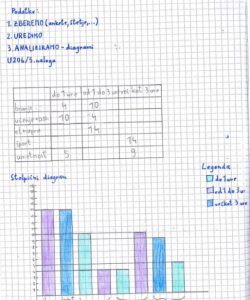 Podatke:
1. ZBEREMO (ankete, štetje,...)
2. UREDIMO
3. ANALIZIRAMO - diagrami
U206/3. naloga
do 1 ure od 1 do 3 ur več kot 3 ure
branje 4 10
10 4
14
šport 14
umetnost 5 9
Stolpični diagram
Legenda
do 1 ure
od 1 do 3 ur
več kot 3 ure